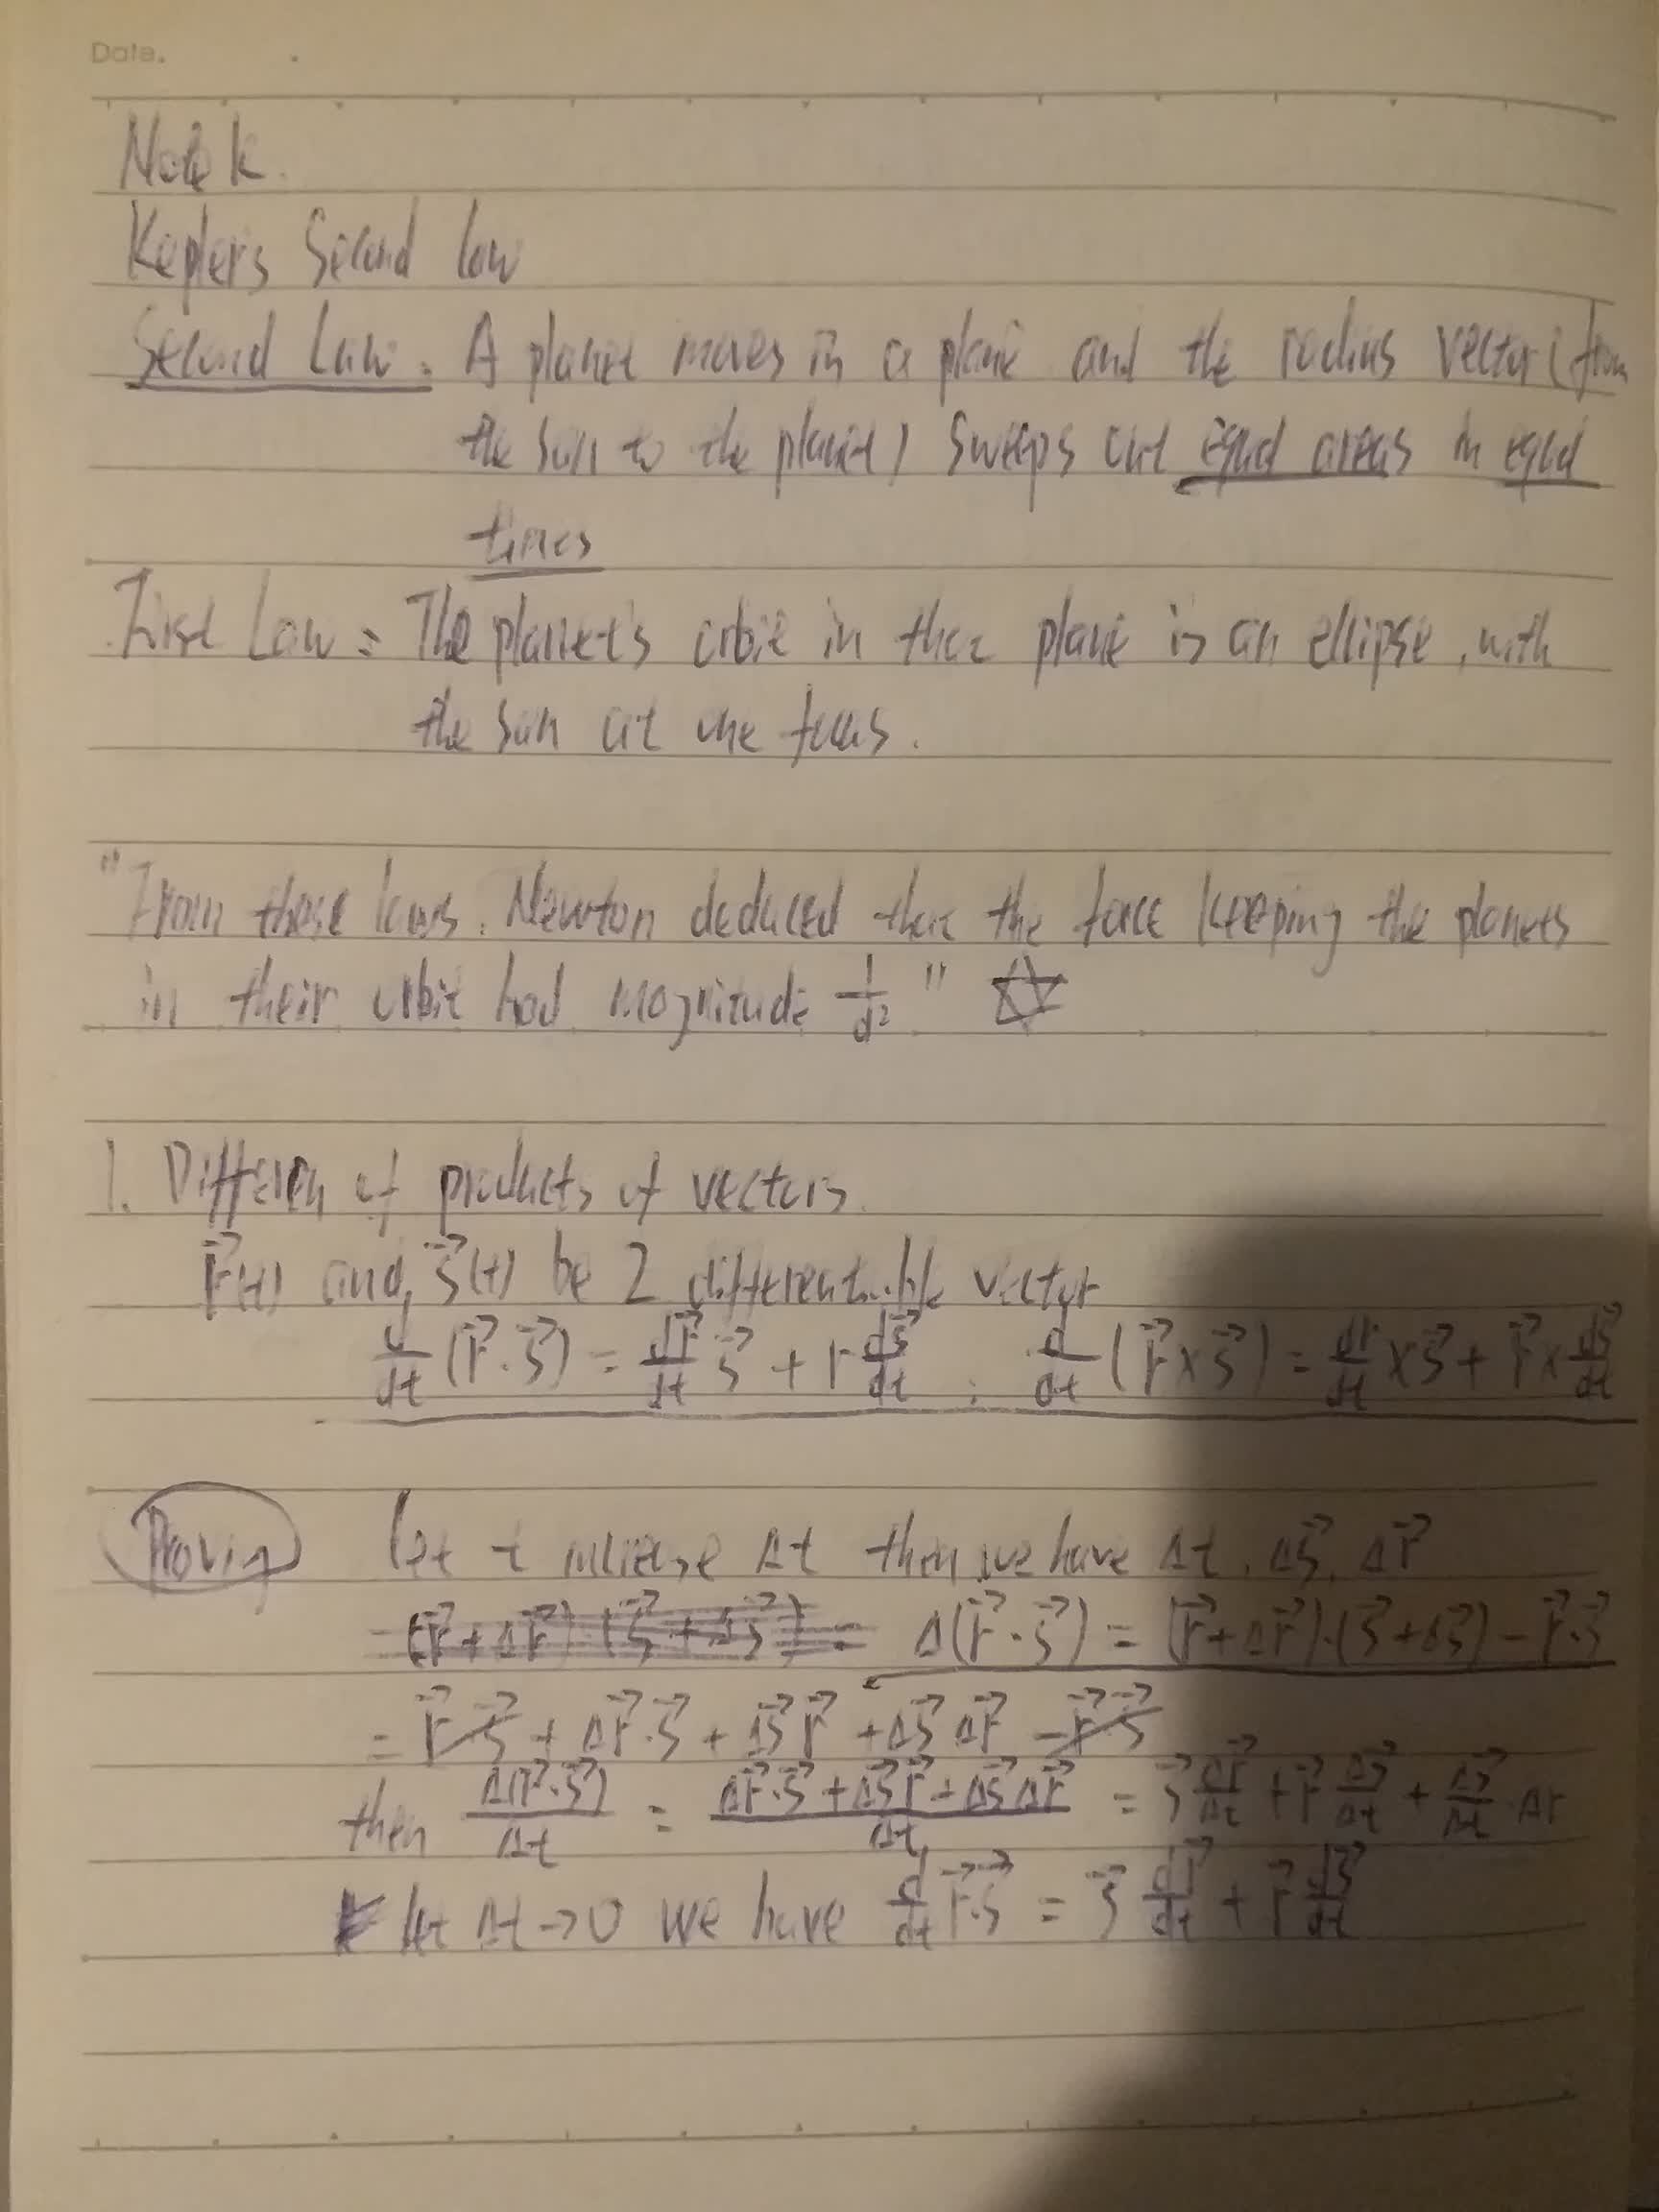 Date.
Note k.
Kepler's Second Law
Second Law: A planet moves in a plane and the radius vector (from
the sun to the planet) sweeps out equal areas in equal
times
First Law: The planet's orbit in that plane is an ellipse, with
the sun at one focus.
"From these laws, Newton deduced that the force keeping the planets
in their orbit had magnitude 1/d² " ☆
1. Differen of products of vectors.
r⃗(t) and s⃗(t) be 2 differentiable vector
d/dt (r⃗·s⃗) = dr⃗/dt s⃗ + r ds⃗/dt ; d/dt (r⃗×s⃗) = dr/dt × s⃗ + r⃗ × ds⃗/dt
Proving let t increase Δt then we have Δt, Δs⃗, Δr⃗
(r⃗+Δr⃗)·(s⃗+Δs⃗) = Δ(r⃗·s⃗) = (r⃗+Δr⃗)·(s⃗+Δs⃗) − r⃗·s⃗
= r⃗·s⃗ + Δr⃗·s⃗ + Δs⃗ r⃗ + Δs⃗ Δr⃗ − r⃗·s⃗
then Δ(r⃗·s⃗)/Δt = (Δr⃗·s⃗ + Δs⃗ r⃗ + Δs⃗ Δr⃗)/Δt = s⃗ Δr⃗/Δt + r⃗ Δs⃗/Δt + Δs⃗/Δt · Δr
let Δt → 0 we have d/dt r⃗·s⃗ = s⃗ dr⃗/dt + r⃗ ds⃗/dt